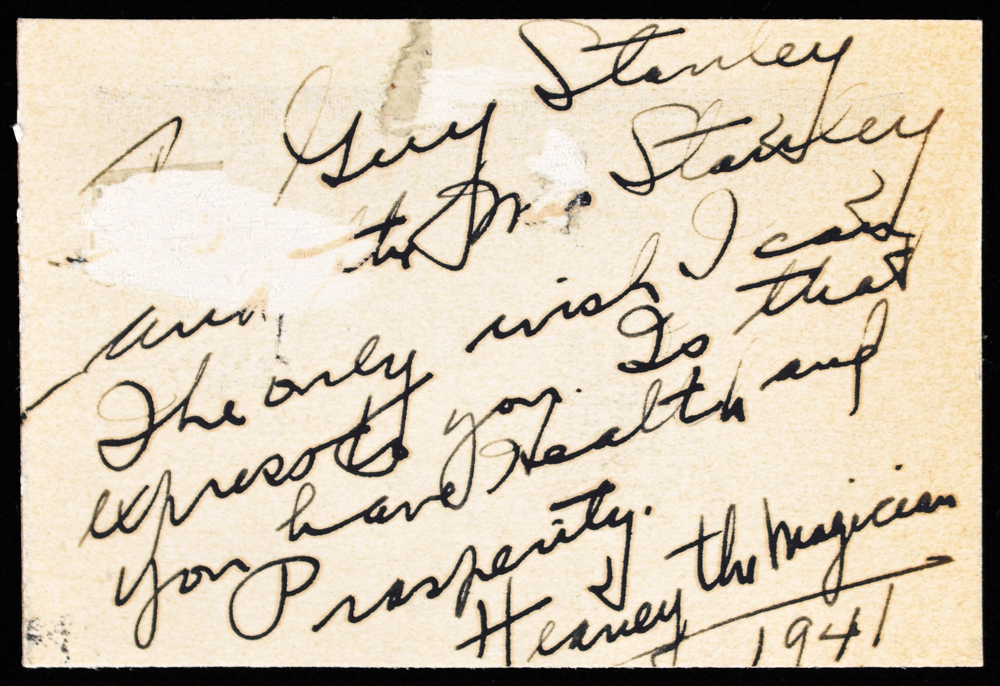 Guy Stanley
and to Stanley
The only wish I can
express to you. Is that
you have Health and
Prosperity.
Heaney the Magician
1941